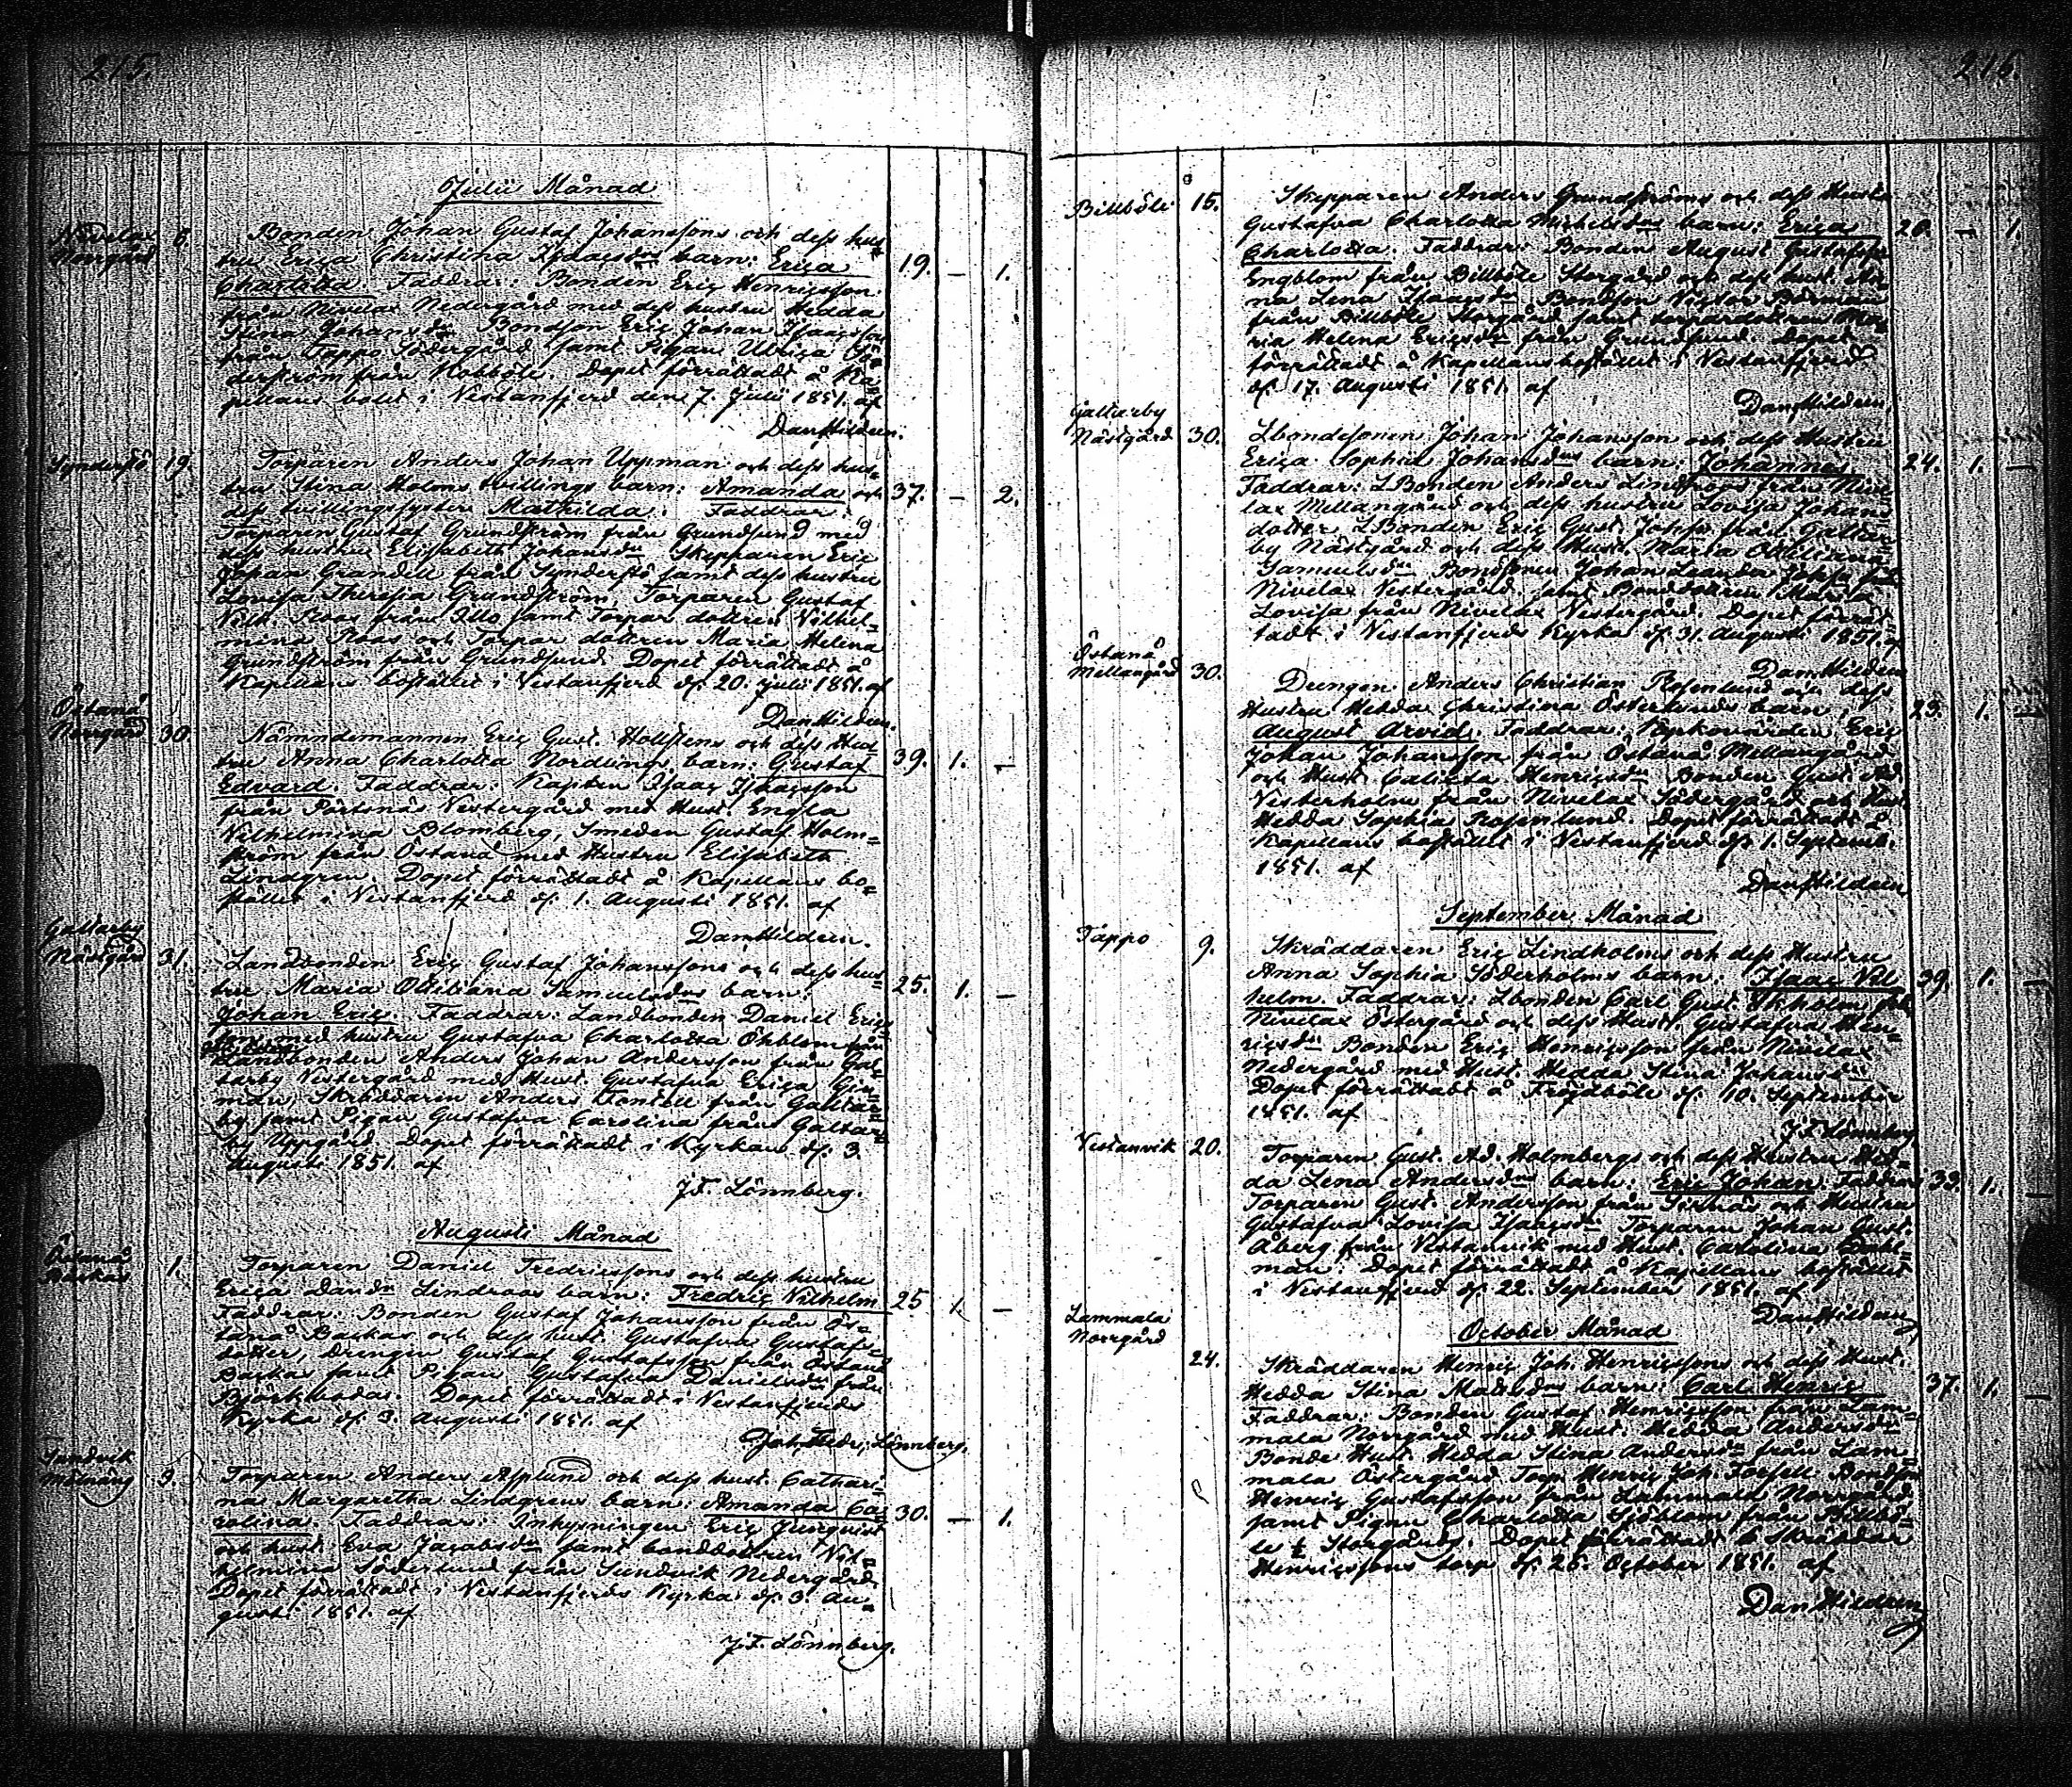 215.
Julii Månad
Nivelax Norrgård 6. Bonden Johan Gustaf Johanssons och dess hus=
tru Erica Christina Isaacsdrs barn: Erica 19. — 1.
Charlotta. Faddrar: Bonden Eric Henricsson
från Nivelax Nedergård med dess hustru Hedda
Stina Johansdr Bondson Eric Johan Isaacsson
från Tappo Södergård samt Pigan Ulrica Sö=
derström från Kobböle. Dopet förrättadt å Ka=
pellans bolet i Vestanfjerd den 7. Julii 1851. af
Dan Hildeen.
Syndersö 19. Torparen Anders Johan Uppman och dess hus=
tru Stina Holms tvillings barn: Amanda och 37. — 2.
dess tvillingssyster Mathilda. Faddrar:
Torparen Gustaf Grundström från Grundsund med
dess hustru Elisabeth Johansdr Skepparen Eric
Johan Grandell från Syndersö samt dess hustru
Lovisa Theresia Grundström, Torparen Gustaf
Vilh. Roos från Illo samt Torpar dottren Vilhel=
mina Roos och Torpar dottren Maria Helena
Grundström från Grundsund. Dopet förrättadt å
Kapellans bostället i Vestanfjerd d. 20. Julii 1851. af
Dan Hildeen.
Östanå Norrgård 30. Nämndemannen Eric Gust. Hollstens och dess Hus=
tru Anna Charlotta Nordlings barn: Gustaf 39. 1. —
Edvard. Faddrar: Kapten Isaac Isaacsson
från Pörtsnäs Vestergård med Hust. Engla
Vilhelmina Blomberg, Smeden Gustaf Holm=
ström från Östanå med Hustru Elisabeth
Lindgren. Dopet förrättadt å Kapellans bo=
stället i Vestanfjerd d. 1. Augusti 1851. af
Dan Hildeen.
Galtarby Nästgård 31. Landbonden Eric Gustaf Johanssons och dess hus=
tru Maria Ottiliana Samuelsdrs barn: 25. 1. —
Johan Eric. Faddrar: Landbonden Daniel Erics=
son med hustru Gustafva Charlotta Öhblom från
Landbonden Anders Johan Andersson från Gal=
tarby Vestergård med Hust. Gustafva Erica
man, Skräddaren Anders Fontell från Galtar=
by samt Pigan Gustafva Carolina från Galtar=
by Uppgård. Dopet förrättadt i Kyrkan d. 3.
Augusti 1851. af
J. F. Lönnberg.
Augusti Månad
Östanå Backas 1. Torparen Daniel Fredricssons och dess hustru
Erica Davdr Lindroos barn: Fredric Vilhelm 25 1. —
Faddrar: Bonden Gustaf Johansson från Ös=
tanå Backas och dess hust. Gustafva Gustafs=
dotter, Drengen Gustaf Gustafsson från Östanå
Backas samt Pigan Gustafva Danielsdr från
Björkbodas. Dopet förrättadt i Vestanfjerds
Kyrka d. 3. Augusti 1851. af
Joh. Fredr. Lönnberg.
Sundvik 3. Torparen Anders Asplund och dess hust. Cathari=
na Margaretha Lindgrens barn: Amanda Ca= 30. — 1.
rolina. Faddrar: Inhysningen Eric Jungqvist
och hust. Eva Jacobsdr samt bonddottren Vil=
helmina Söderlund från Sundvik Nedergård.
Dopet förrättadt i Vestanfjerds Kyrka d. 3. Au=
gusti 1851. af
J. F. Lönnberg.
216.
Billböle 15. Skepparen Anders Grundströms och dess Hustru
Gustafva Charlotta Michelsdrs barn: Erica 20. — 1.
Charlotta. Faddrar: Bonden August Gustafsson
Engblom från Billböle Storgård och dess hust. An=
na Lena Isaacsdr Bondson Victor Boman
från Billböle Storgård samt torpardottren Ma=
ria Helena Ericsdr från Grundsund. Dopet
förrättadt å Kapellansbostället i Vestanfjerd
d. 17. Augusti 1851. af
Dan Hildeen.
Galtarby Nästgård 30. Lbondesonen Johan Johansson och dess Hustru
Erica Sophia Johansdrs barn: Johannes 24. 1. —
Faddrar: LBonden Anders Lindroos från Nive=
lax Mellangård och dess hustru Lovisa Johans
dotter LBonden Eric Gust. Johss. från Galtar=
by Nästgård och dess Hust. Maria Ottiliana
Samuelsdr Bondsonen Johan Leander Johss. från
Nivelax Vestergård samt Bonddottren Maria
Lovisa från Nivelax Vestergård. Dopet förrät=
tadt i Vestanfjerds Kyrka d. 31. Augusti 1851. af
Dan Hildeen
Östanå Mellangård 30. Drengen Anders Christian Rosenlund och dess
Hustru Hedda Christina Österlunds barn: 23. 1. —
August Arvid. Faddrar: Kyrkovärden Eric
Johan Johansson från Östanå Mellangård
och Hust. Calixta Henricsdr Bonden Gust. Ad.
Vesterholm från Nivelax Södergård och Hust.
Hedda Sophia Rosenlund. Dopet förrättadt å
Kapellans bostället i Vestanfjerd d. 1. Septemb.
1851. af
Dan Hildeen
September Månad
Tappo 9. Skräddaren Eric Lindholms och dess Hustru
Anna Sophia Söderholms barn: Isaac Vil= 39. 1. —
helm. Faddrar: Lbonden Carl Gust. från
Nivelax Östergård och dess Hust. Gustafva Hen=
ricsdr Bonden Eric Henricsson från Nivelax
Nedergård med Hust. Hedda Stina Johansdr
Dopet förrättadt å Fröjdböle d. 10. September
1851. af
J. F. Lönnberg
Vestanvik 20. Torparen Gust. Ad. Holmbergs och dess Hustru Hed=
da Lena Andersdrs barn: Eric Johan. Faddrar: 33. 1. —
Torparen Gust. Andersson från och Hustru
Gustafva Lovisa Isaacsdr Torparen Johan Gust.
Åberg från Vestanvik med Hust. Carolina Dahl=
man. Dopet förrättadt å Kapellans bostället
i Vestanfjerd d. 22. September 1851. af
Dan Hildeen
October Månad
Lammala Norrgård 24. Skräddaren Henric Joh. Henricssons och dess Hust.
Hedda Stina Matsdrs barn: Carl Henric 37. 1. —
Faddrar: Bonden Gustaf Henricsson från Lam=
mala Norrgård med Hust. Hedda Andersdr
Bonde Hust. Hedda Stina Andersdr från Lam=
mala Östergård Torp. Henric Joh. Forsell Bondson
Henric Gustafsson från Lammala Norrgård
samt Pigan Charlotta Sjöblom från Billbö=
le Storgård. Dopet förrättadt å Skräddar
Henricssons torp d. 26. October 1851. af
Dan Hildeen